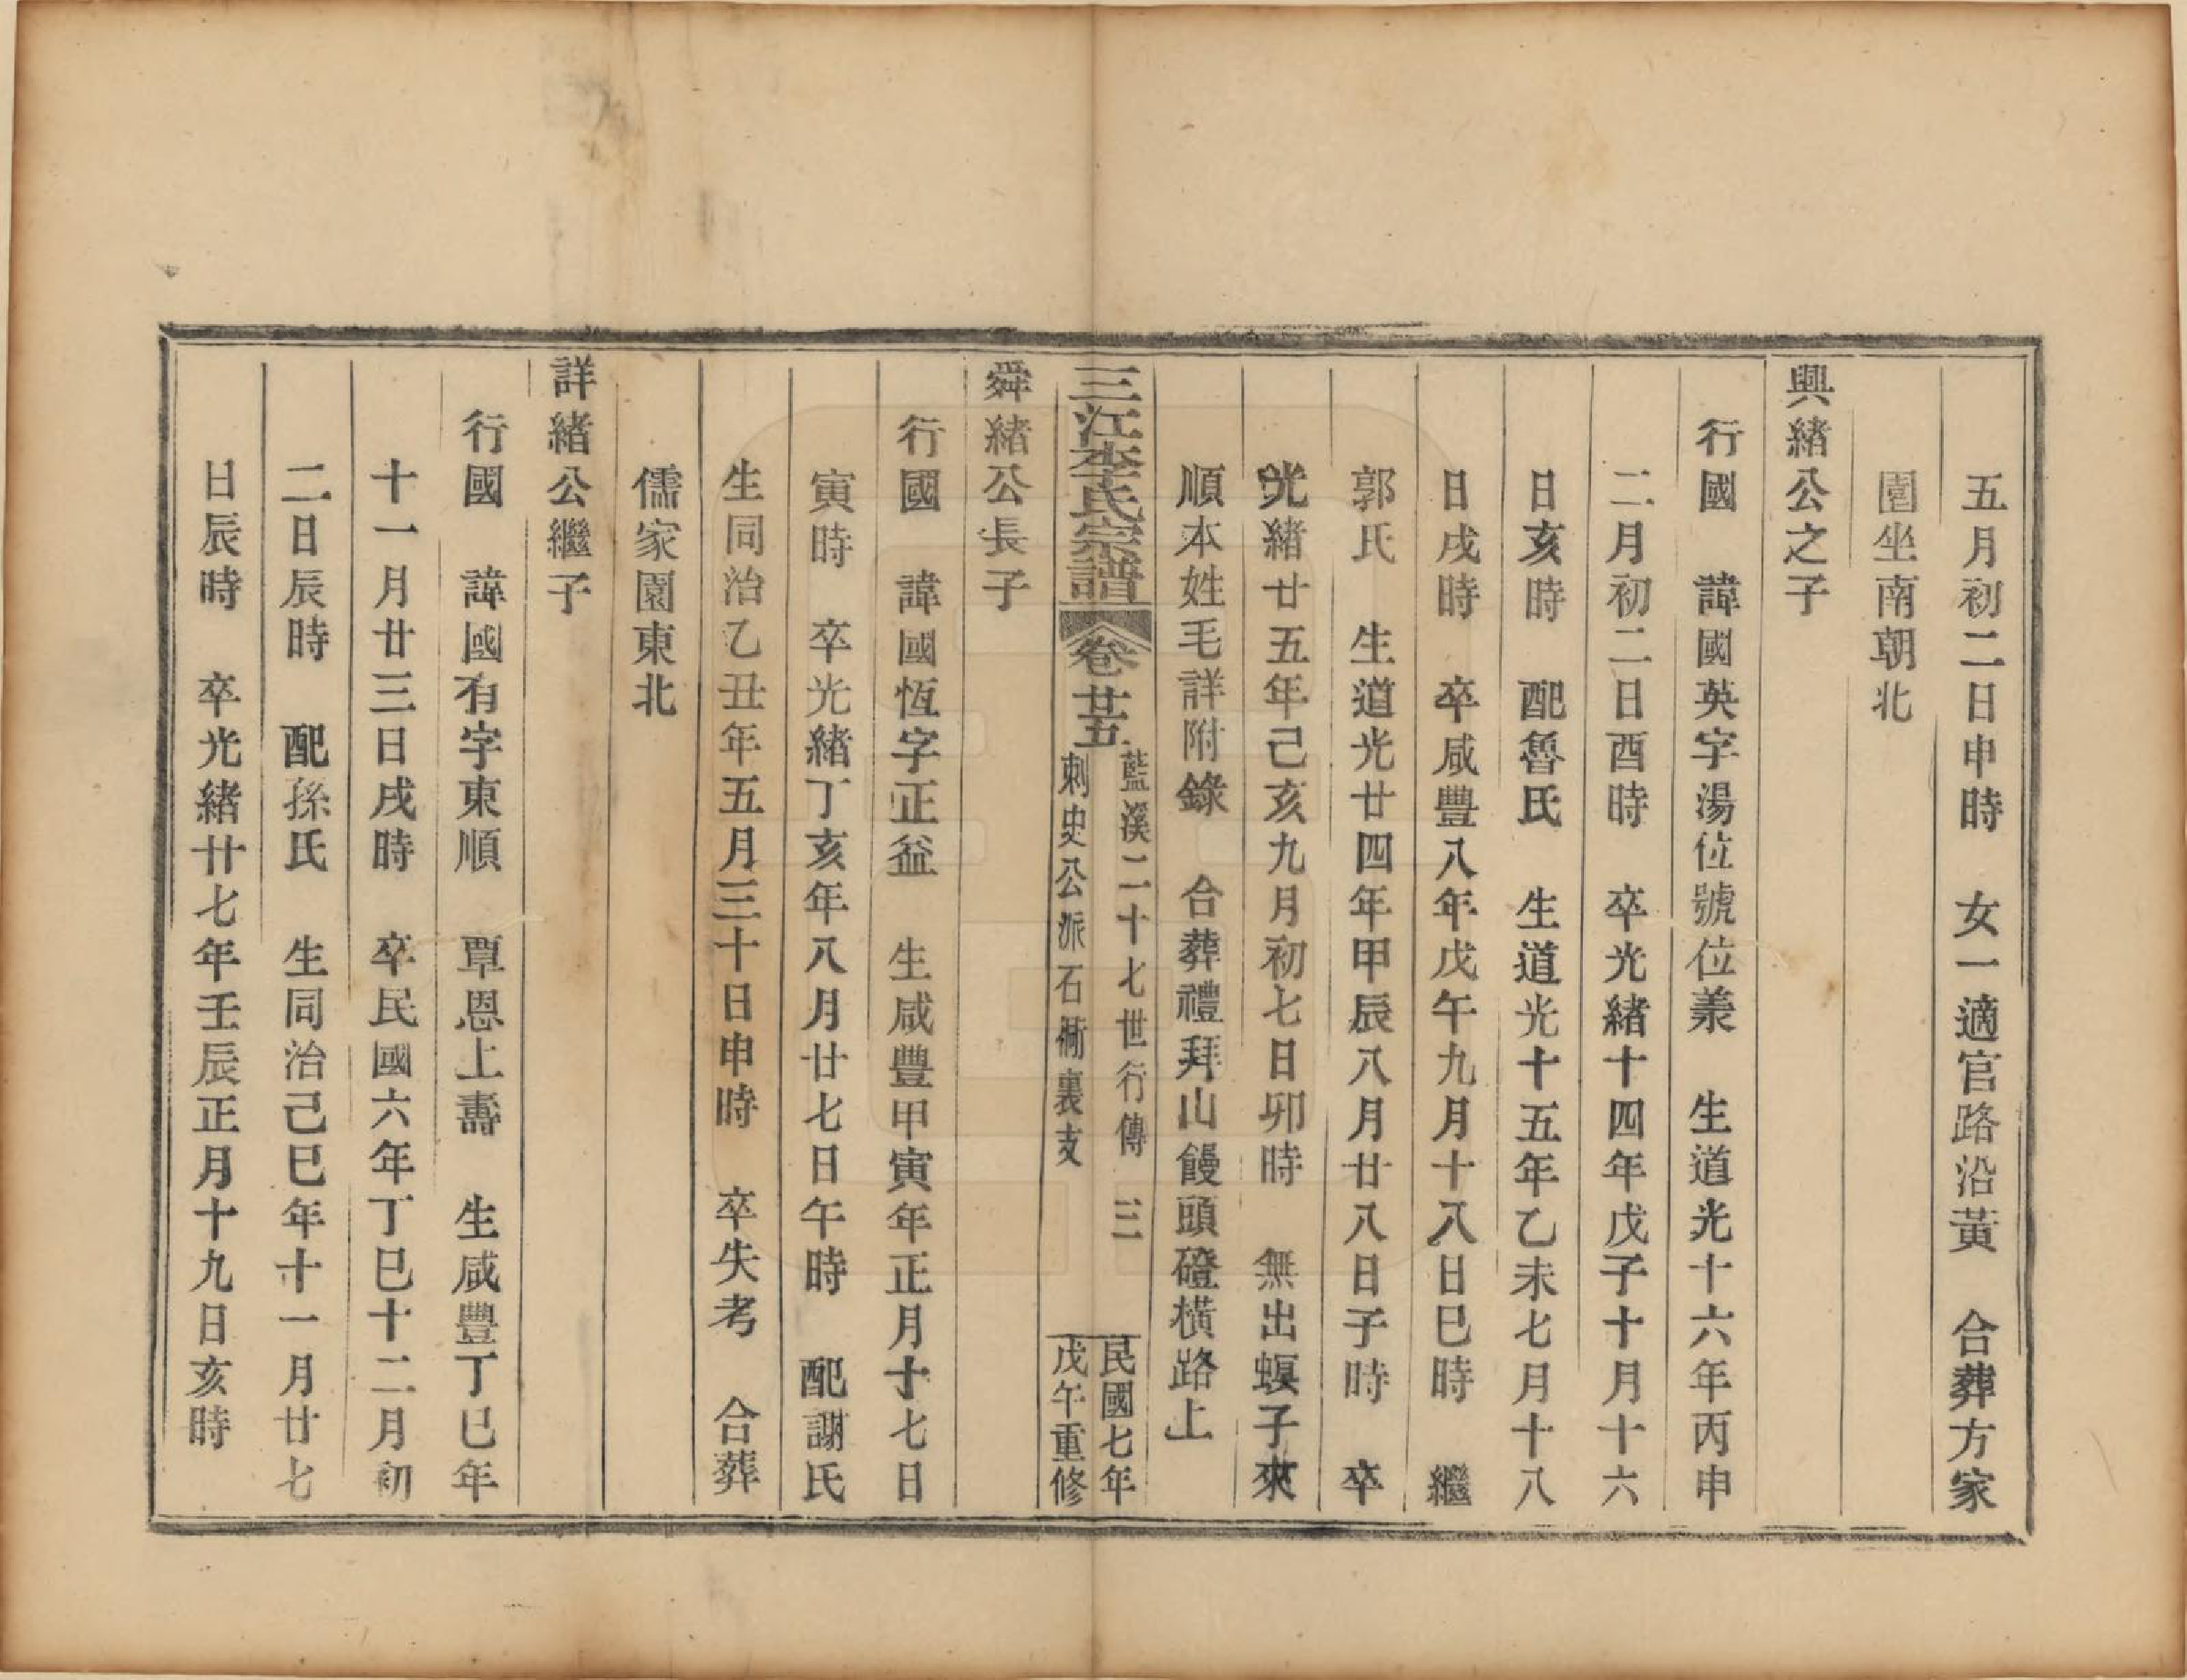 五月初二日申時　女一適官路沿黃　合葬方家
園坐南朝北
興緒公之子
行國　諱國英字湯位號位業　生道光十六年丙申
二月初二日酉時　卒光緒十四年戊子十月十六
日亥時　配魯氏　生道光十五年乙未七月十八
日戌時　卒咸豐八年戊午九月十八日巳時　繼
郭氏　生道光廿四年甲辰八月廿八日子時　卒
光緒廿五年己亥九月初七日卯時　無出螟子來
順本姓毛詳附錄　合葬禮拜山饅頭磴橫路上
三江李氏宗譜　卷廿五
藍溪二十七世行傳　三
刺史公派石衕裏支
民國七年
戊午重修
舜緒公長子
行國　諱國恆字正益　生咸豐甲寅年正月十七日
寅時　卒光緒丁亥年八月廿七日午時　配謝氏
生同治乙丑年五月三十日申時　卒失考　合葬
儒家園東北
詳緒公繼子
行國　諱國有字東順　覃恩上壽　生咸豐丁巳年
十一月廿三日戌時　卒民國六年丁巳十二月初
二日辰時　配孫氏　生同治己巳年十一月廿七
日辰時　卒光緒廿七年壬辰正月十九日亥時